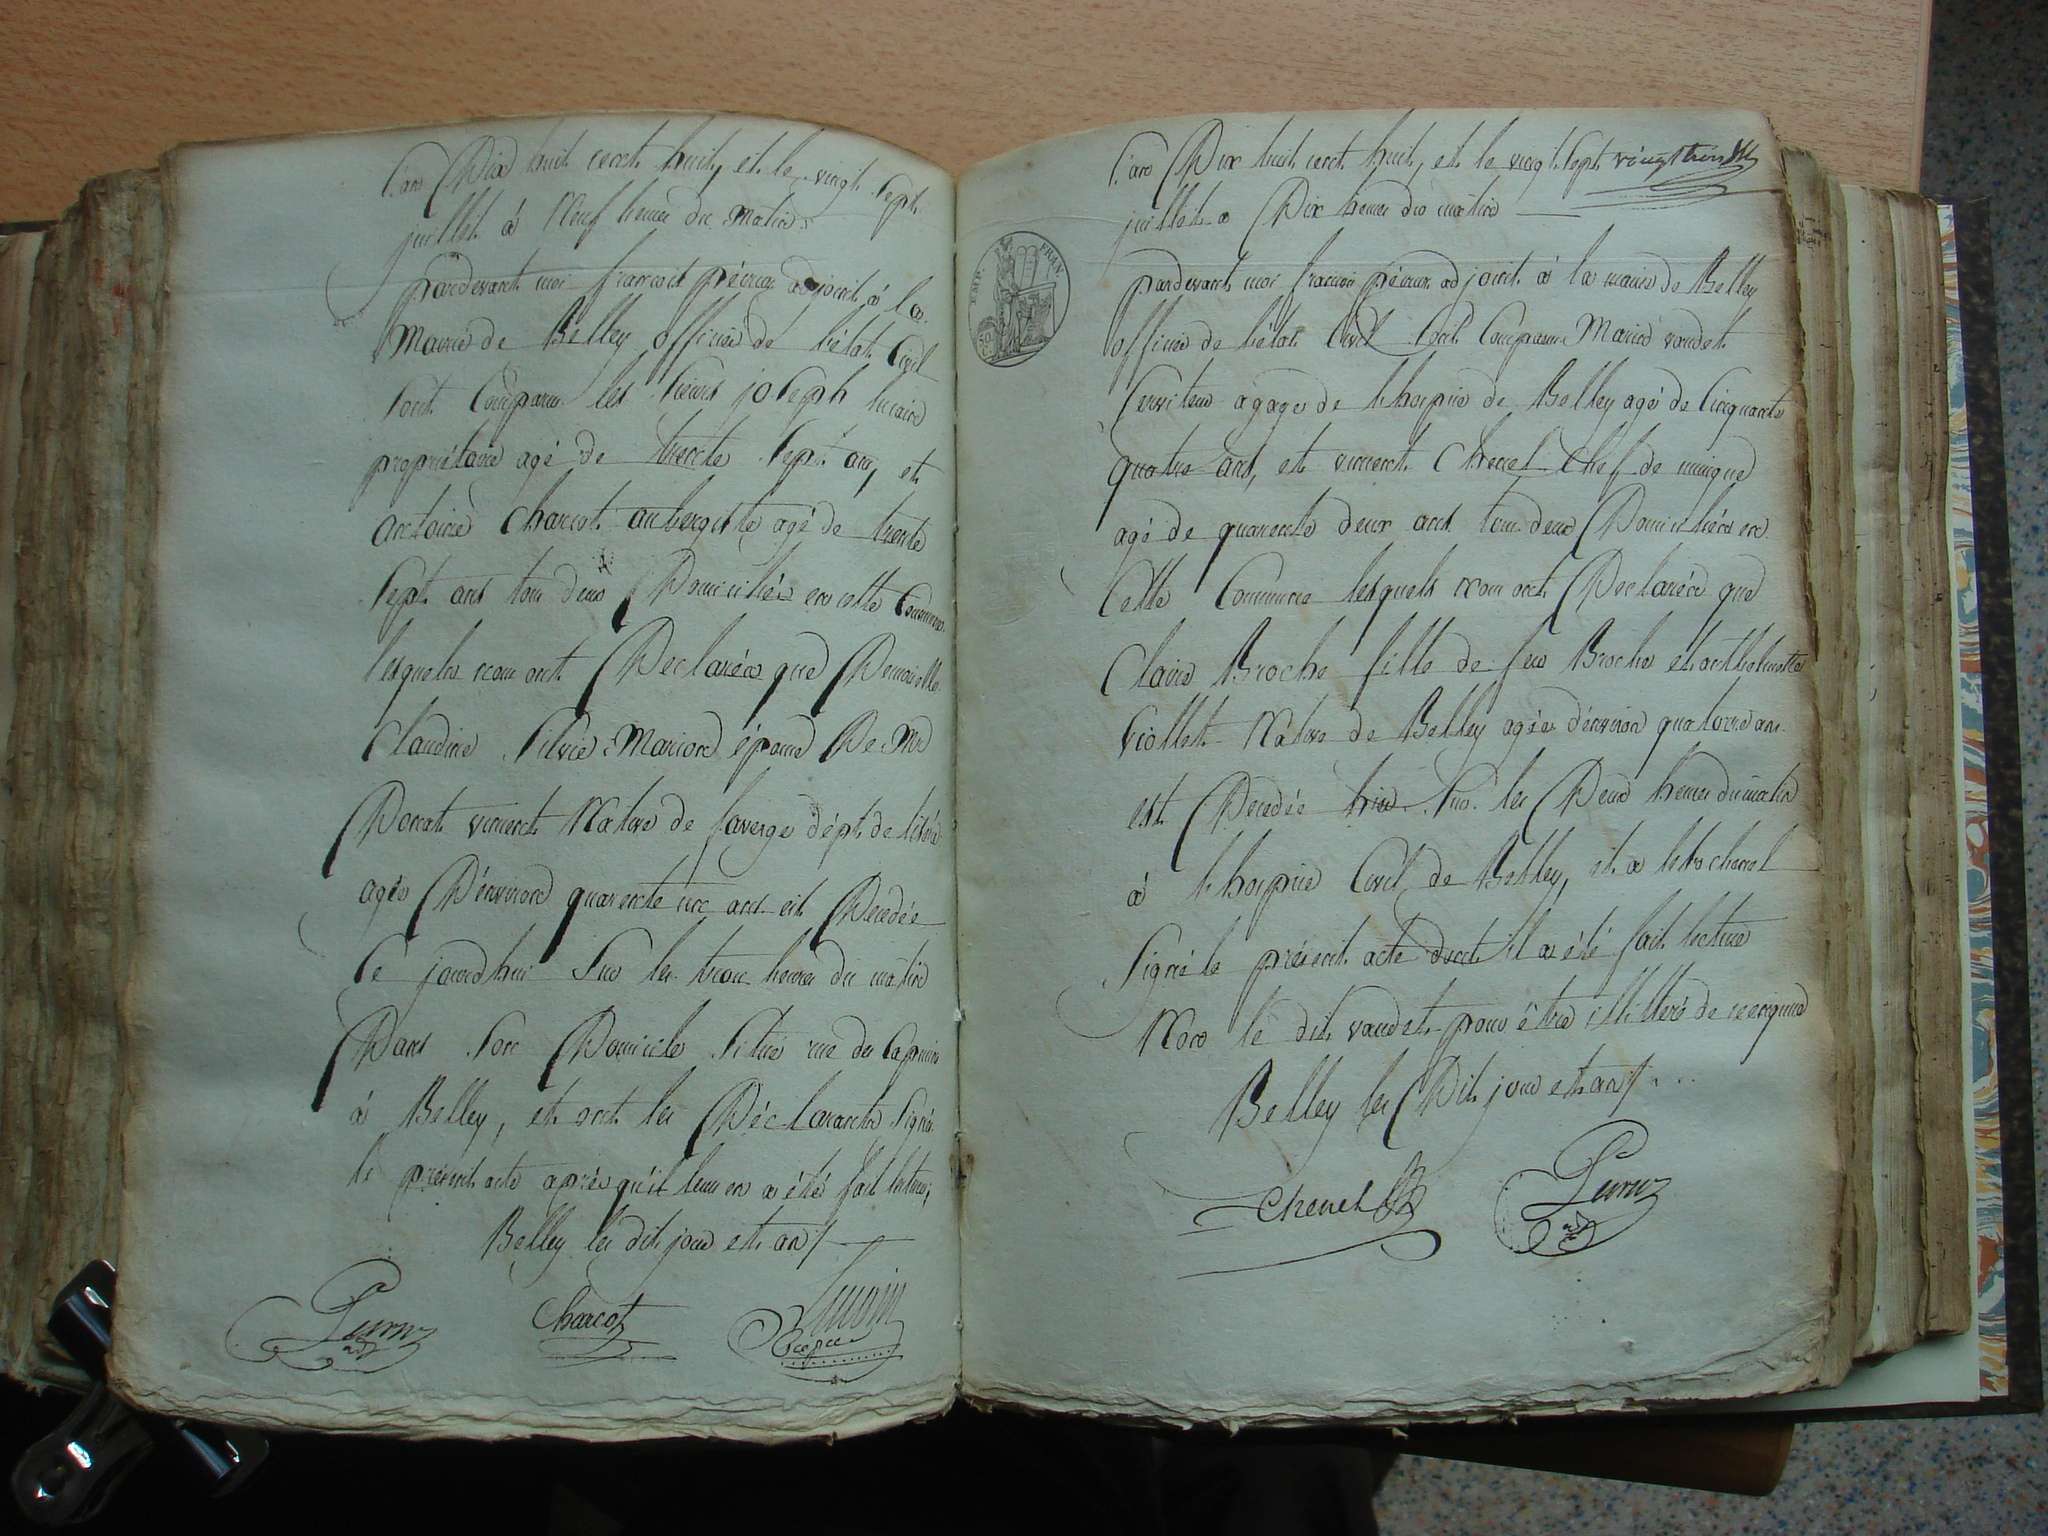 L'an Dix huit cent huit, et le vingt sept
juillet à Neuf heures du Matin
pardevant moi françois adjoint à la
Mairie de Belley officier de l'état Civil
Sont Comparus les Sieurs joseph
propriétaire agé de trente Sept ans, et
antoine Charcot aubergiste agé de trente
Sept ans tous deux Domiciliés en cette Commune
lesquels nous ont Declarés que Demoiselle
Claudine Silvie Marion épouse De Mr
Dorcat vincent Native de faverge dépt. de l'isère
agée D'environ quarente un ans est Decedée
Ce jourd'hui Sur les trois heures du matin
Dans Son Domicile Situé rue des Capucins
à Belley, et ont les Déclarants Signé
le présent acte après qu'il leur en a été fait lecture,
Belley les dit jour et an /
Charcot
L'an Dix huit cent huit, et le vingt Sept
juillet a Dix heures du matin
EMP. FRAN.
50
pardevant moi françois adjoint à la mairie de Belley
officier de l'état Civil Sont Comparus Marin vaudet
Serviteur a gages de l'hospice de Belley agé de Cinquante
quatre ans, et vincent Chenel Chef de musique
agé de quarente deux ans tous deux Domiciliés en
Cette Commune lesquels nous ont Declarés que
Claire Broche fille de feu Broche et
viollet Native de Belley agée d'environ quatorze ans
est Decedée hier Sur les Deux heures du matin
à l'hospice Civil de Belley, et a le Chenel
Signé le présent acte dont il a été fait lecture
Non le dit vaudet pour être illitteré de ce enquis
Belley les Dit jour et an /
Chenel